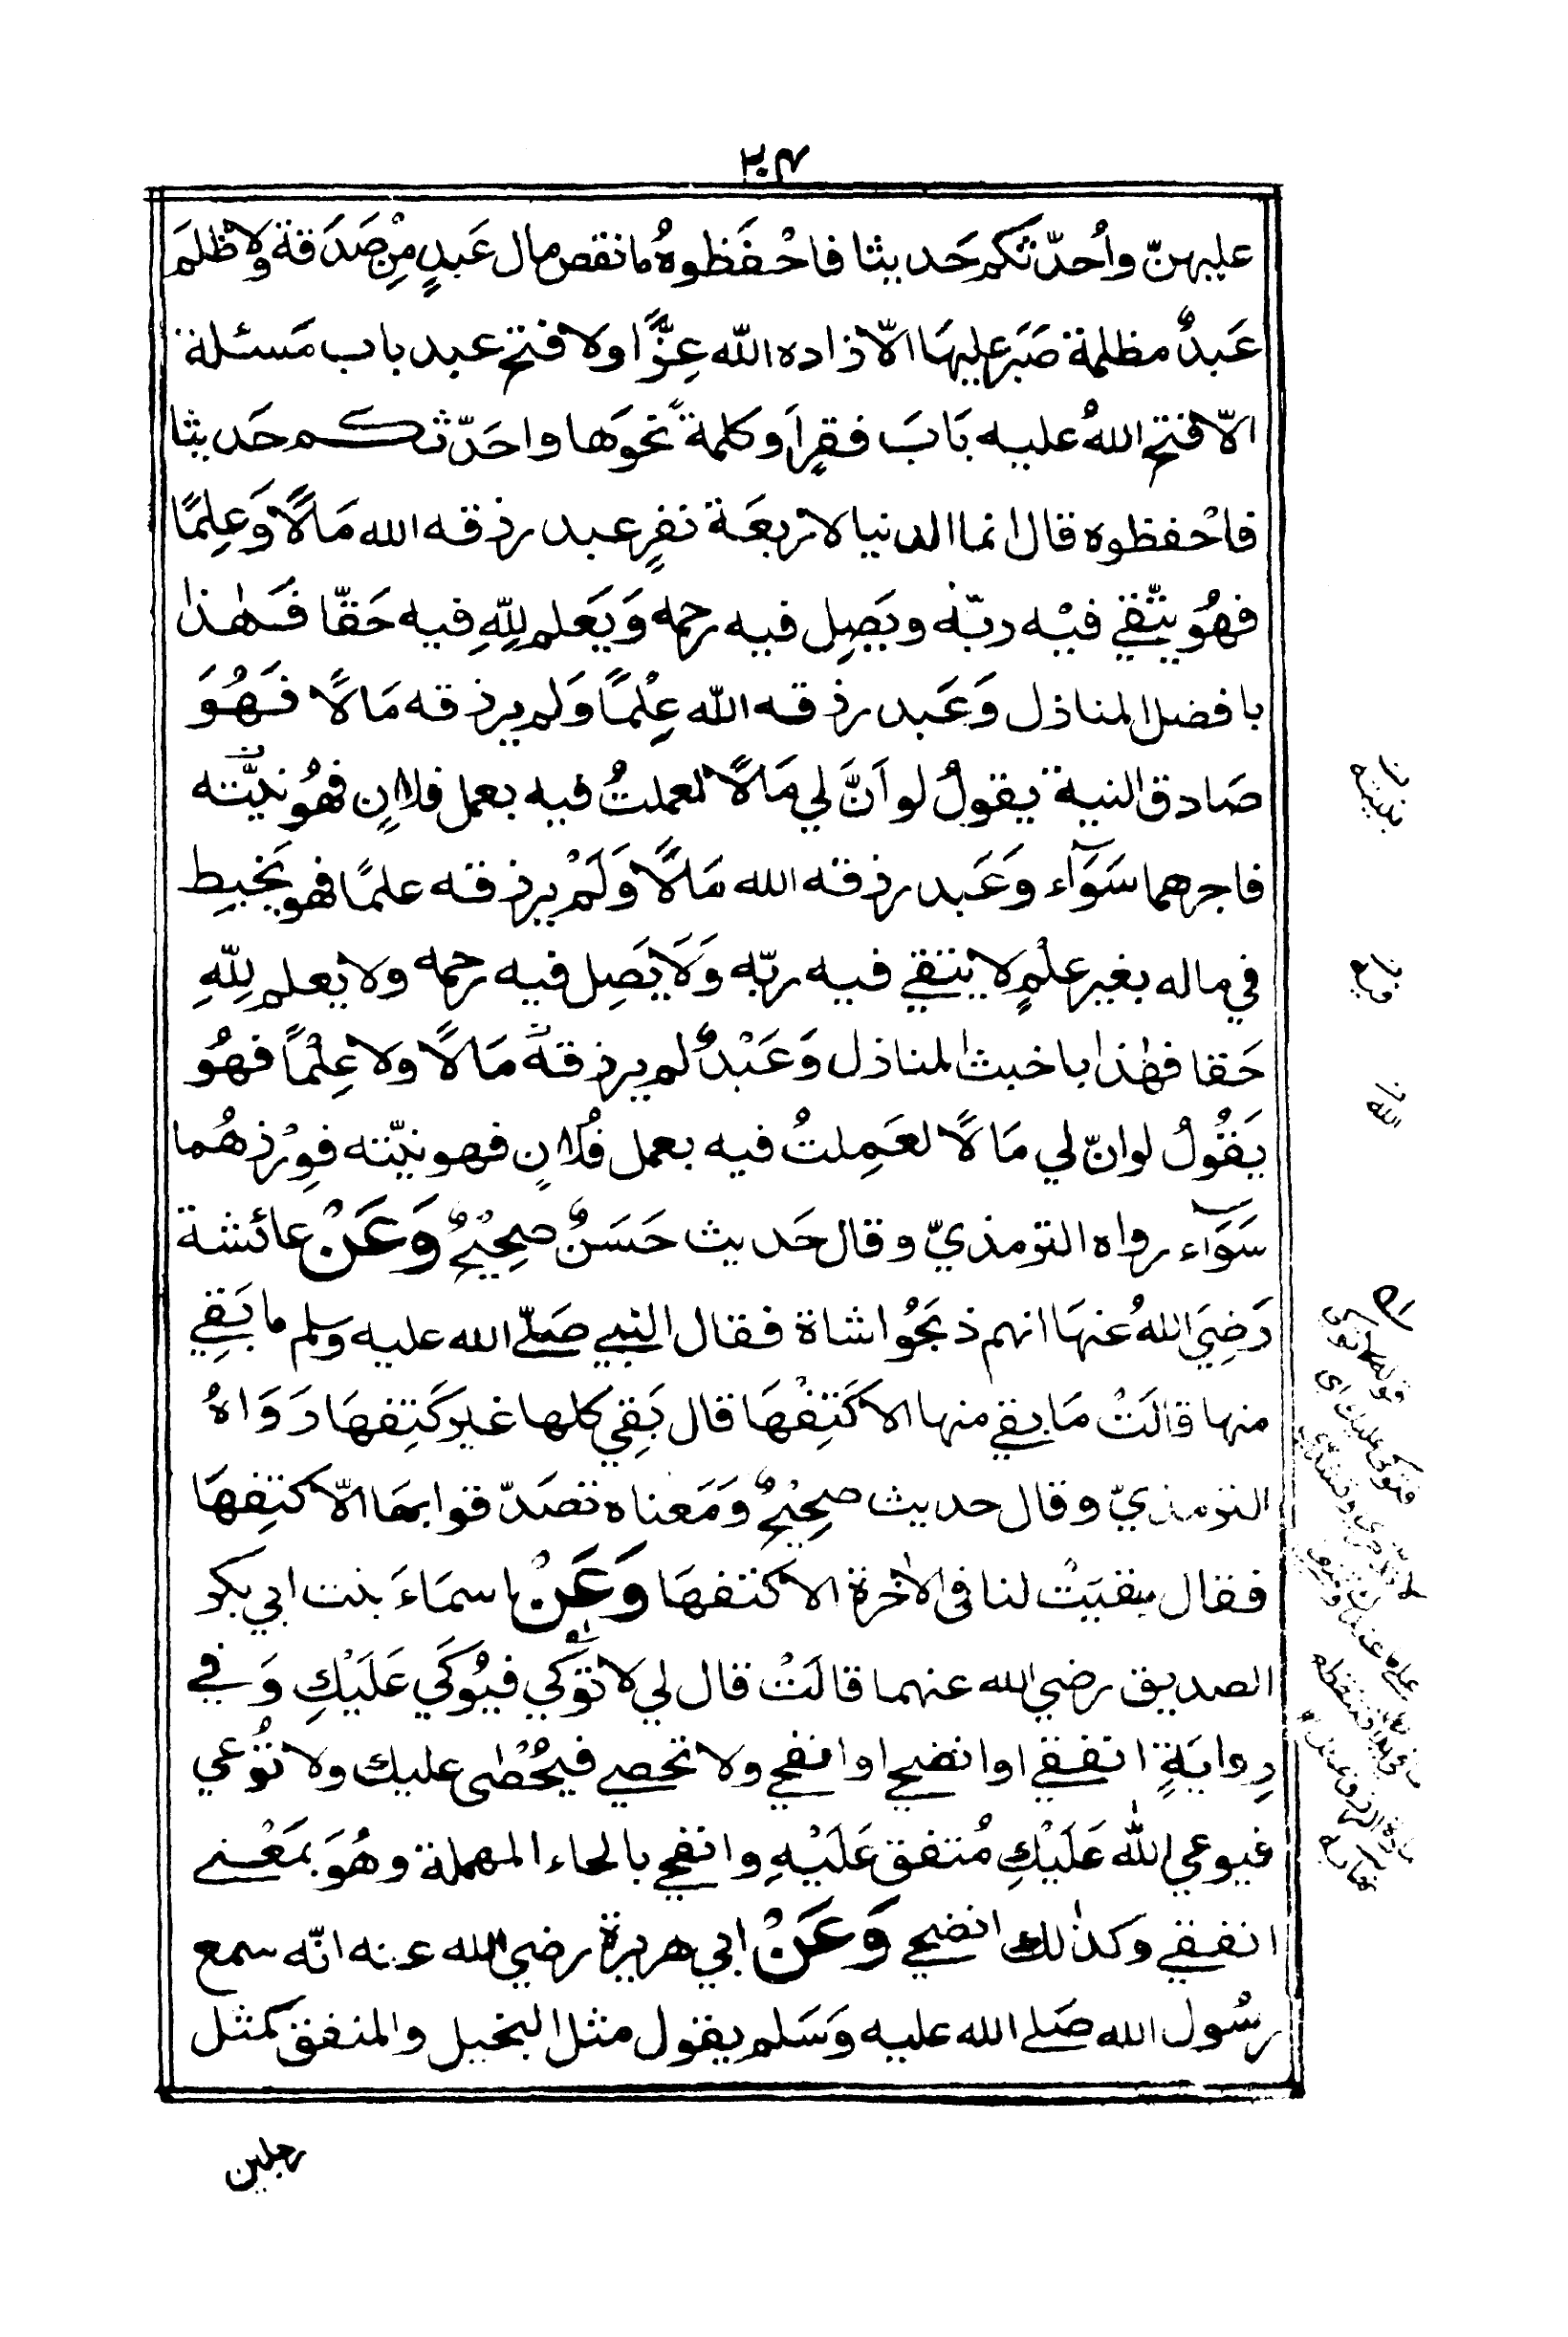 ٢٠٤
عليهنّ وأُحدّثكم حَديثا فاحْفَظوهُ ما نقص مال عَبدٍ مِنْ صَدَقة ولا ظلمَ
عَبدٌ مظلمة صَبَر عليهَا الّا زاده الله عِزًّا ولا فتح عبد باب مَسئلة
الّا فتح اللهُ عليه بَابَ فقرٍ اَو كلمةً نحوَها واحَدّثكم حَديثا
فاحْفظوه قال انما الدنيا لاربعَة نفرٍ عبد رزقه الله مَالًا وَعِلمًا
فهُو يتّقي فيْه ربّه ويَصِل فيه رحمه وَيَعلم لِلّهِ فيه حَقّا فَهٰذا
بافضل المنازل وَعَبد رزقه الله عِلْمًا وَلم يرزقه مَالًا فَهُوَ
صَادق النية يقولُ لو اَنَّ لي مَالًا لعملتُ فيه بعمل فلانٍ فهُو نيَّته
فاجرهما سَوَآء وعَبد رزقه الله مَالًا وَلَمْ يرزقه علمًا فهو يَخبِط
في ماله بغير علْمٍ لا يتقي فيه ربّه وَلَا يَصِل فيه رحمه ولا يعلم لِلّهِ
حَقا فهٰذا باخبث المنازل وَعَبْدٌ لم يرزقه مَالًا ولا عِلْمًا فهُو
يَقُولُ لو انّ لي مَالًا لعَمِلتُ فيه بعمل فُلانٍ فهو نيّته فوِزْرهُما
سَوَآء رواه الترمذيّ وقال حَديث حَسَنٌ صحِيْحٌ وَعَنْ عائشة
رَضِيَ اللهُ عنهَا انهم ذبَحُوا شاة فقال النبي صَلّے الله عليه وسلم ما بَقِي
منها قالَتْ مَا بقي منها الا كَتِفْهَا قال بَقِي كلها غير كَتِفهَا رَوَاهُ
الترمذيّ وقال حديث صحِيْحٌ وَمَعناه تصَدّقوا بهَا الّا كتِفهَا
فقال بقيَتْ لنا فى الاٰخرة الا كتفهَا وَعَنْ اسمَاءَ بنت ابي بكر
الصديق رضي الله عنهما قالَتْ قال لي لا تُوكي فيُوكَي عَلَيْكِ وَفي
رِوايَةٍ انفقي او انضحي او انفحي ولا تحصي فيُحْصٰى عليك ولا تُوعي
فيوعي اللّٰه عَلَيْكِ مُتفق عَلَيْهِ وانفحي بالحاء المهملة وهُوَ بمَعْنے
انفقي وكذٰلك انضحي وَعَنْ ابي هريرة رضي الله عنه انّه سمع
رسُول الله صَلے الله عليه وَسَلم يقول مثل البخيل والمنفق كمثل
رجلين